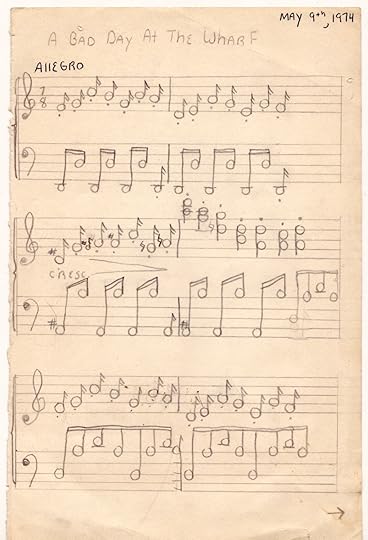 MAY 9th, 1974
A BAD DAY At THE WHARF
AllEGRO
7
8
CRESC